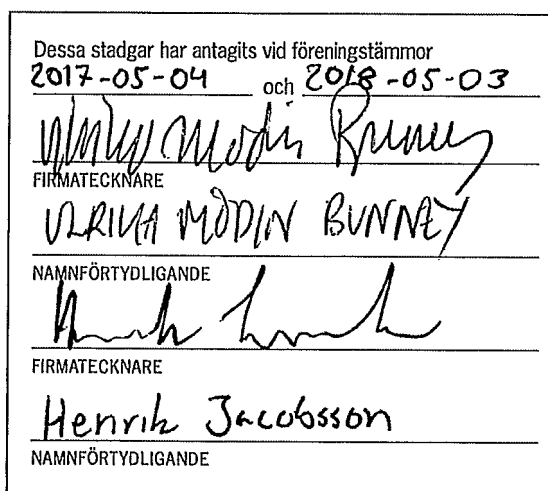 Dessa stadgar har antagits vid föreningstämmor
2017-05-04 och 2018-05-03
FIRMATECKNARE
ULRIKA MODIN BUNNEY
NAMNFÖRTYDLIGANDE
FIRMATECKNARE
Henrik Jacobsson
NAMNFÖRTYDLIGANDE